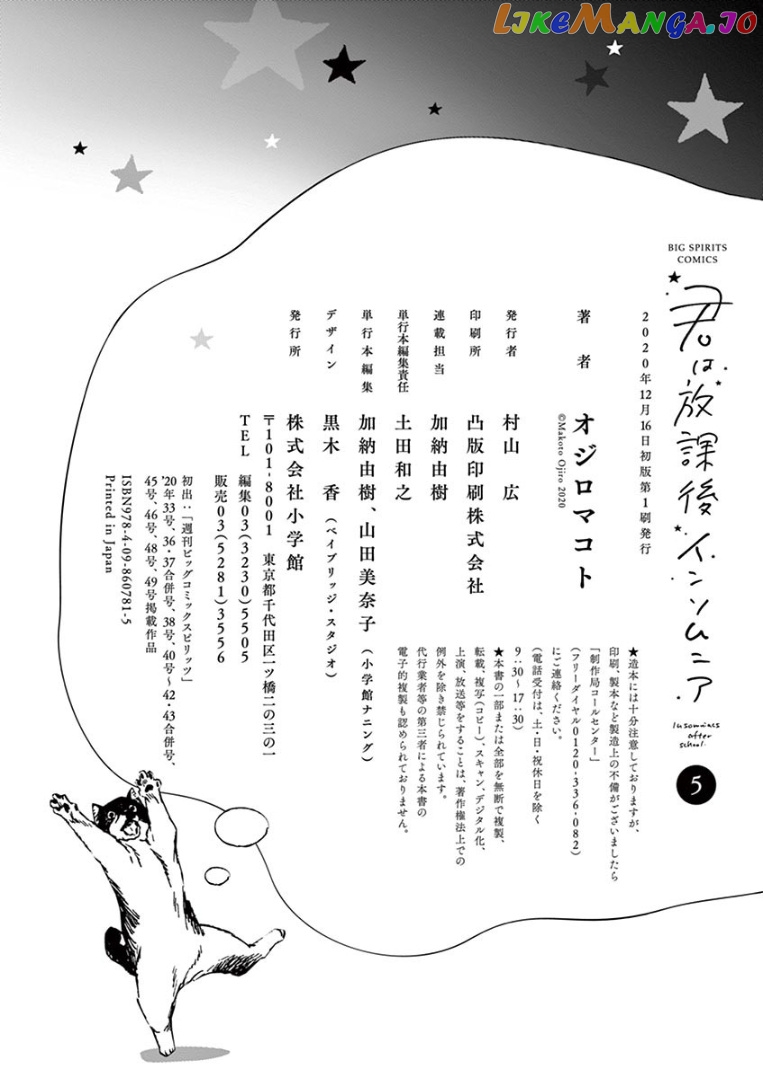 LIKEMANGA.IO
BIG SPIRITS
COMICS
君は放課後インソムニア
Insomniacs
after
school
5
2020年12月16日初版第1刷発行
著者 オジロマコト
©Makoto Ojiro 2020
発行者 村山 広
印刷所 凸版印刷株式会社
連載担当 加納由樹
単行本編集責任 土田和之
単行本編集 加納由樹、山田美奈子(小学館ナニング)
デザイン 黒木 香(ベイブリッジ・スタジオ)
発行所 株式会社小学館
〒101-8001 東京都千代田区一ツ橋二の三の一
TEL 編集03(3230)5505
販売03(5281)3556
初出:「週刊ビッグコミックスピリッツ」
'20年33号、36・37合併号、38号、40号〜42・43合併号、
45号、46号、48号、49号掲載作品
ISBN978-4-09-860781-5
Printed in Japan
★造本には十分注意しておりますが、
印刷、製本など製造上の不備がございましたら
「制作局コールセンター」
(フリーダイヤル0120-336-082)
にご連絡ください。
(電話受付は、土・日・祝休日を除く
9:30〜17:30)
★本書の一部または全部を無断で複製、
転載、複写(コピー)、スキャン、デジタル化、
上演、放送等をすることは、著作権法上での
例外を除き禁じられています。
代行業者等の第三者による本書の
電子的複製も認められておりません。